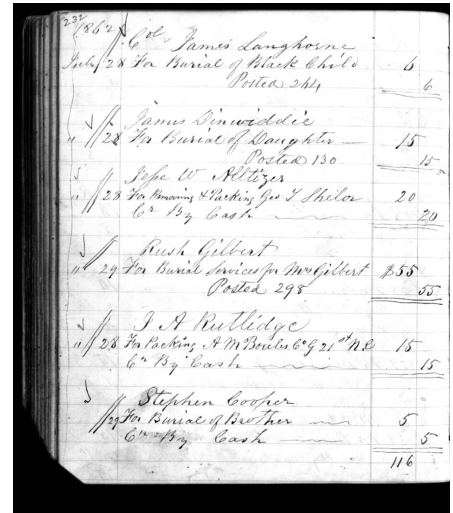 232
1862
Col James Langhorne
July 28 For Burial of Black Child 6
Posted 244 6
James Dinwiddie
" 28 For Burial of Daughter 15
Posted 130 15
Jesse W Altizer
" 28 For Removing & Packing Geo T Shelor 20
Cr By Cash 20
Rush Gilbert
" 29 For Burial Services for Mrs Gilbert $55
Posted 298 55
J A Rutlidge
" 28 For Packing A M Boules Co G 21st 15
Cr By Cash 15
Stephen Cooper
29 For Burial of Brother 5
Cr By Cash 5
116